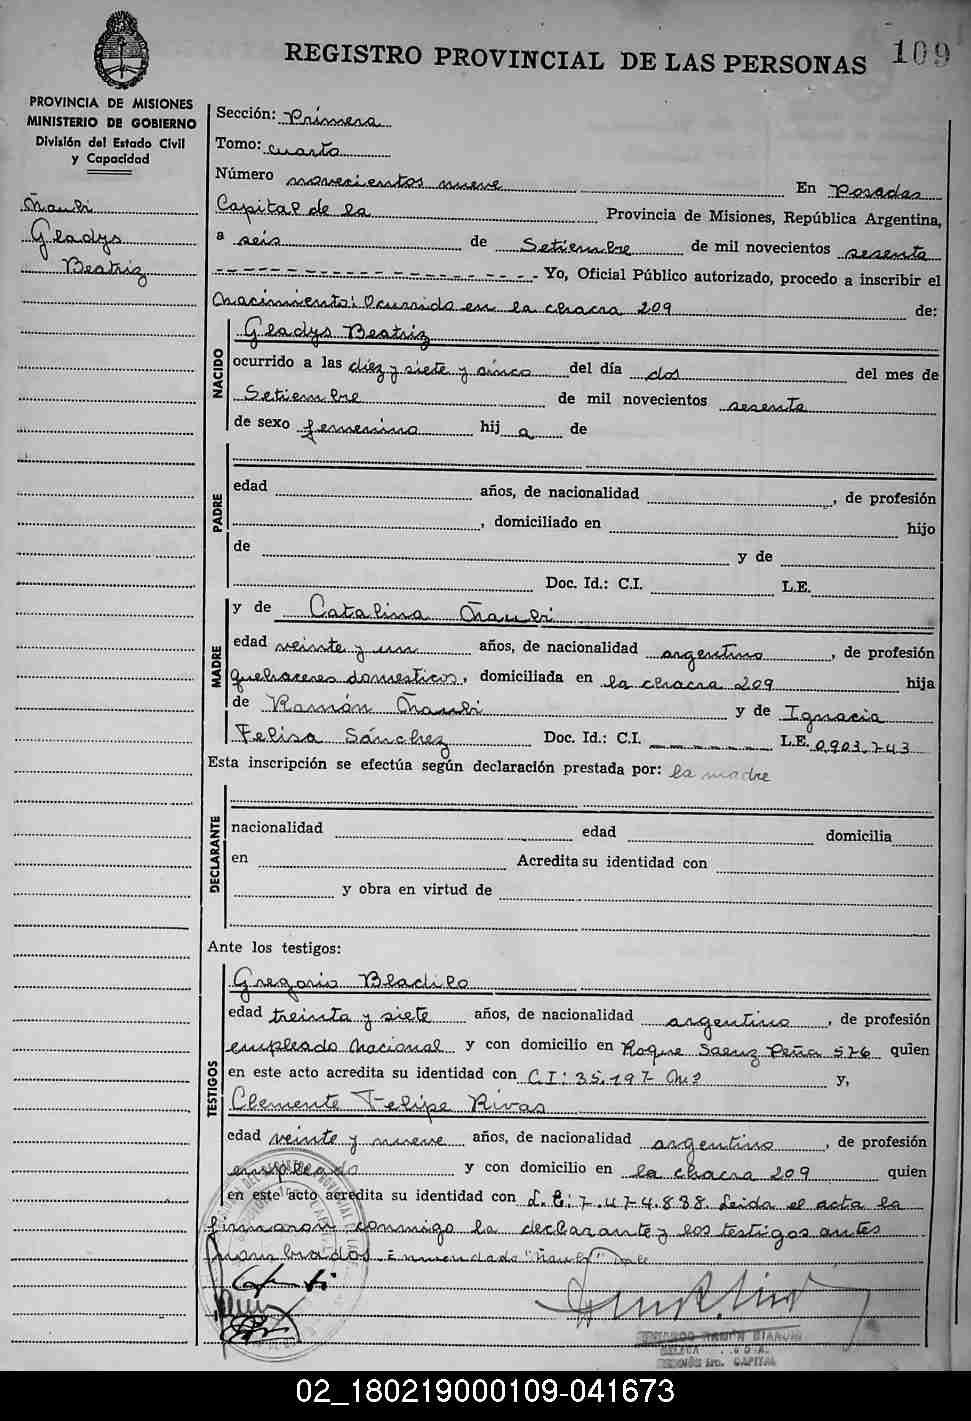 REGISTRO PROVINCIAL DE LAS PERSONAS
109
PROVINCIA DE MISIONES
MINISTERIO DE GOBIERNO
División del Estado Civil
y Capacidad
Ñauli
Gladys
Beatriz
Sección: Primera
Tomo: cuarto
Número novecientos nueve En Posadas
Capital de la Provincia de Misiones, República Argentina,
a seis de Setiembre de mil novecientos sesenta
Yo, Oficial Público autorizado, procedo a inscribir el
Nacimiento: Ocurrido en la chacra 209 de:
NACIDO
Gladys Beatriz
ocurrido a las diez y siete y cinco del día dos del mes de
Setiembre de mil novecientos sesenta
de sexo femenino hij a de
PADRE
edad años, de nacionalidad , de profesión
, domiciliado en hijo
de y de
Doc. Id.: C.I. L.E.
MADRE
y de Catalina Ñauli
edad veinte y un años, de nacionalidad argentino, de profesión
quehaceres domesticos, domiciliada en la chacra 209 hija
de Ramón Ñauli y de Ignacia
Felisa Sánchez Doc. Id.: C.I. L.E. 0.903.743
Esta inscripción se efectúa según declaración prestada por: la madre
DECLARANTE
nacionalidad edad domicilia
en Acredita su identidad con
y obra en virtud de
Ante los testigos:
TESTIGOS
Gregorio Bladilo
edad treinta y siete años, de nacionalidad argentino, de profesión
empleado Nacional y con domicilio en Roque Saenz Peña 576 quien
en este acto acredita su identidad con C.I: 35.197 y,
Clemente Felipe Rivas
edad veinte y nueve años, de nacionalidad argentino, de profesión
empleado y con domicilio en la chacra 209 quien
en este acto acredita su identidad con L.E: 7.474.838. Leida el acta la
firmaron conmigo la declarante y los testigos antes
nombrados. Enmendado "Ñauli" Vale
RAMÓN
CAPITAL
02_180219000109-041673